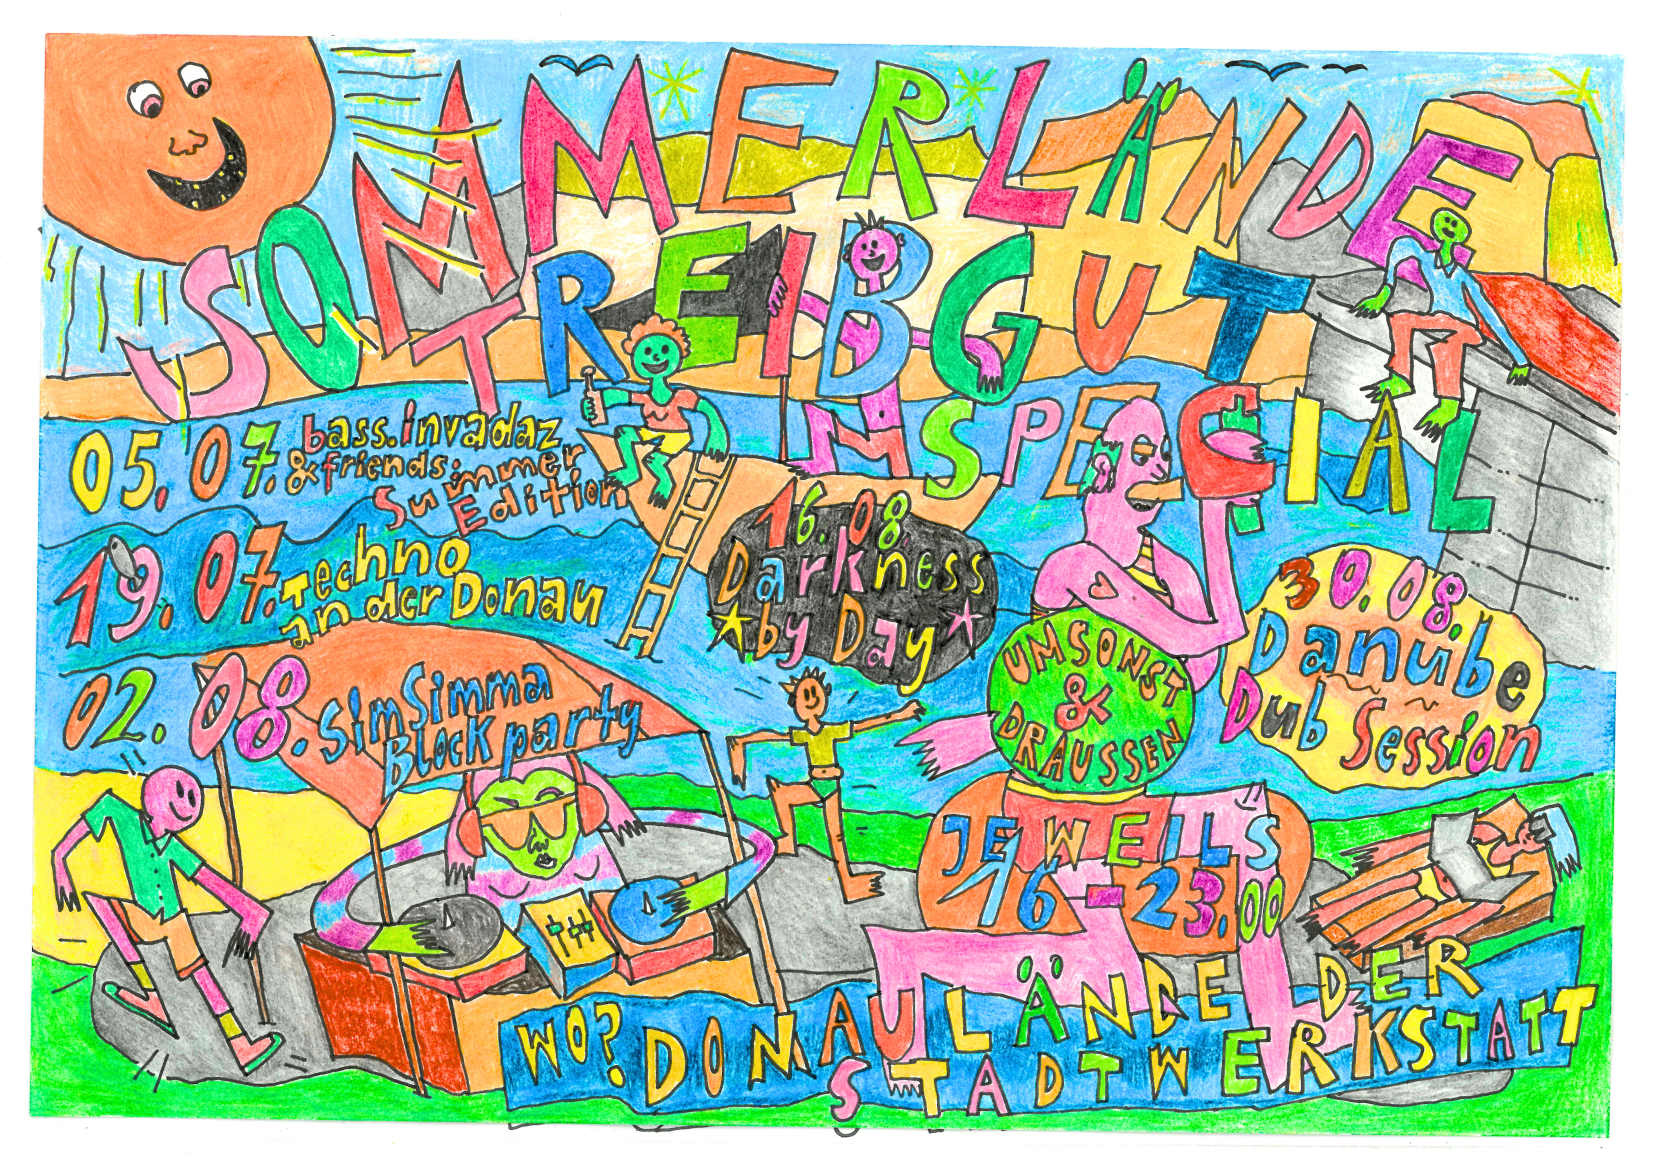 SOMMERLÄNDE
TREIBGUT
IM SPECIAL
05.07. bass.invadaz
& friends summer
Edition
19.07. Techno
an der Donau
02.08. SimSimma
Block party
16.08
Darkness
by Day
30.08.
Danube
Dub Session
UMSONST
&
DRAUSSEN
JEWEILS
16-23.00
WO? DONAULÄNDE DER
STADTWERKSTATT